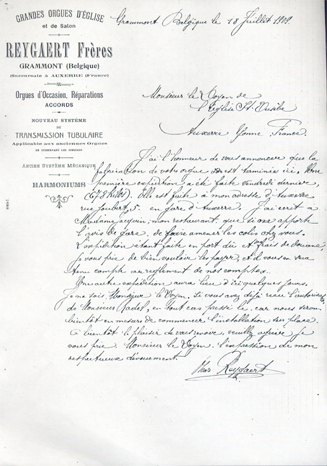 GRANDES ORGUES D'ÉGLISE
et de Salon
REYGAERT Frères
GRAMMONT (Belgique)
(Succursale à AUXERRE (France)
Orgues d'Occasion, Réparations
ACCORDS
NOUVEAU SYSTÈME
DE
TRANSMISSION TUBULAIRE
Applicable aux anciennes Orgues
ANCIEN SYSTÈME MÉCANIQUE
HARMONIUMS
Grammont Belgique le 18 Juillet
Monsieur le Doyen de
l'Eglise St
Auxerre Yonne France
J'ai l'honneur de vous annoncer que la
de votre orgue est terminée ici, une
première expédition a été faite vendredi dernier
Elle est faite à mon adresse d'Auxerre
en gare d'Auxerre. J'ai écrit à
Madame mon restaurant, que si on apporte
l'avis de gare, de faire amener les colis chez vous.
L'expédition étant faite en port dû et frais de douane
je vous prie de bien vouloir les payer et il vous en sera
tenu compte au règlement de nos comptes.
Une autre expédition aura lieu d'ici quelques jours.
Je ne sais Monsieur le Doyen, si vous avez déjà l'autorisation
de Monsieur en tout cas car nous serons
bientôt en mesure de commencer l'installation sur place.
A bientôt le plaisir de vous revoir, veuillez agréer je
vous prie Monsieur le Doyen l'expression de mon
respectueux dévouement.
Reygaert